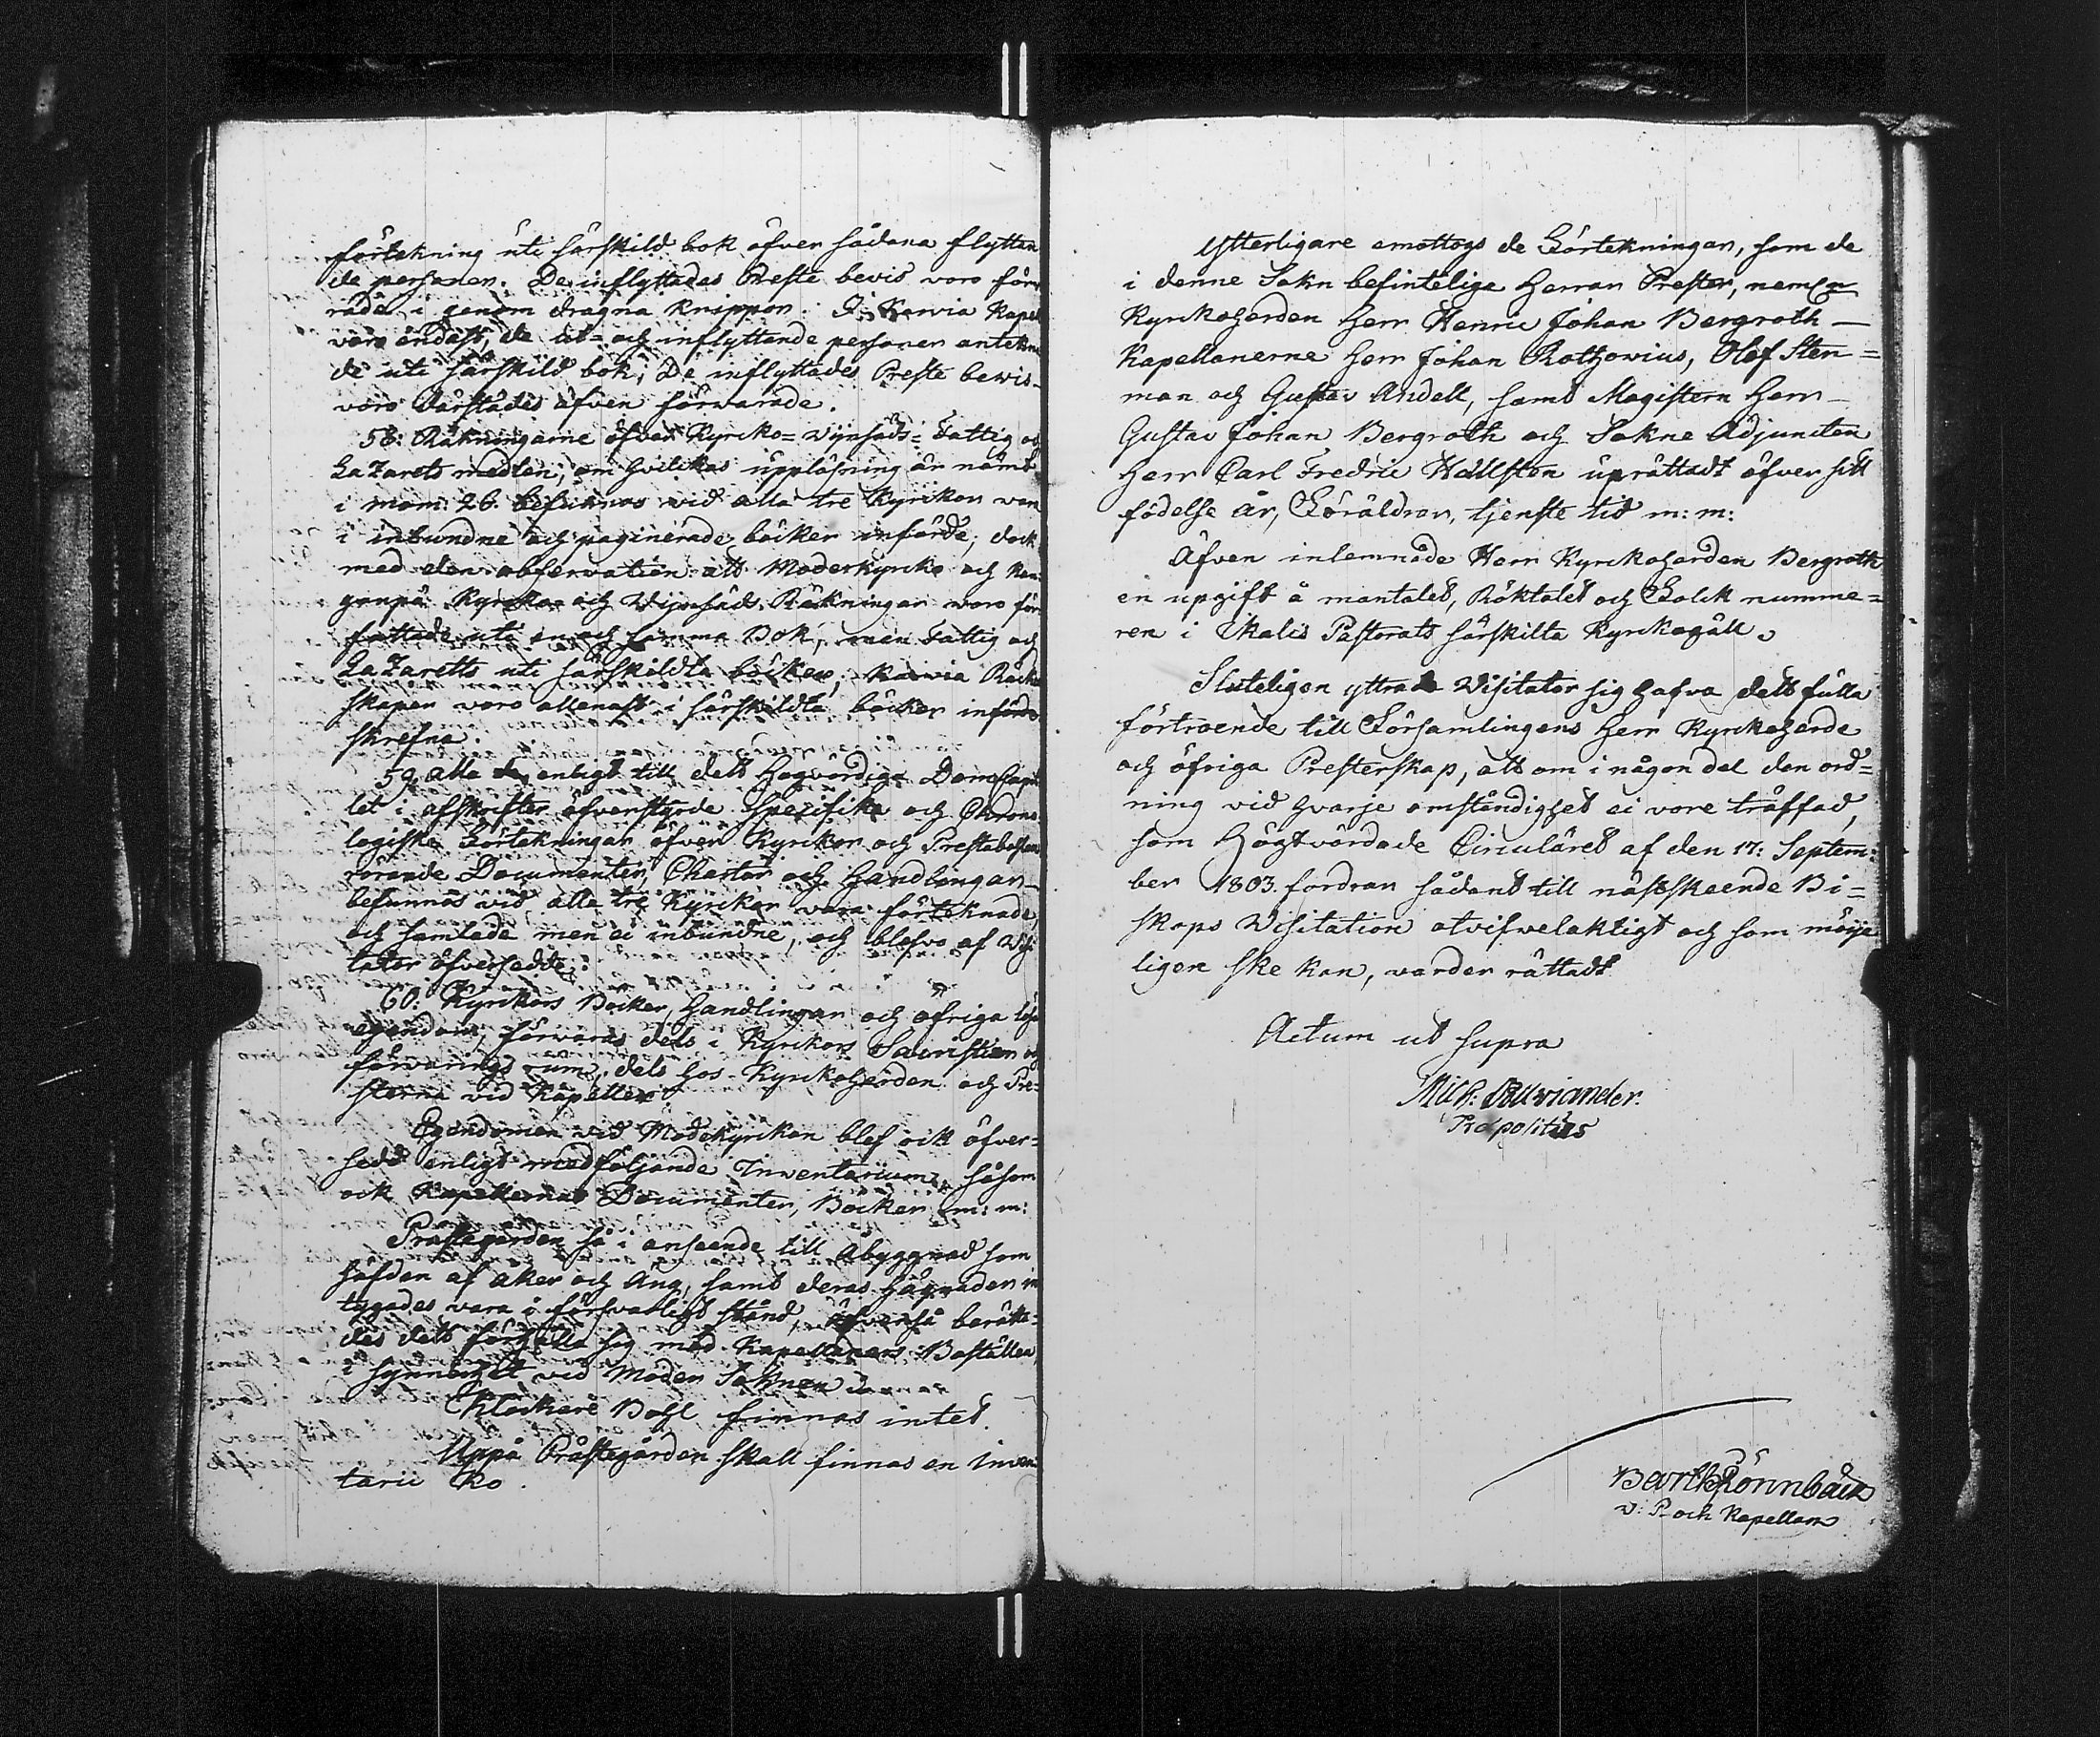 förtekning uti särskild bok öfver sådana flyttan
de personer. De inflyttades Preste bevis voro för-
rade i genom dragna knippor. I Karvia Kapel
voro endast, de ut- och inflyttande personer antekna
de uti särskild bok; De inflyttades Preste bevis
voro därstädes äfven förvarade.
58: Räkningarne öfver Kyrko= Vijnsäds= Fattig och
LaZarets medlen, om hvilkas uppläsning är nämt
i mom: 26. befunnos vid alla tre Kyrkor vara
i inbundne och paginerade böcker införde, dock
med den observation att Moderkyrko och Kan-
gonpä Kyrko och Vijnsäds Räkningar voro för
fattade uti en och samma Bok, men Fattig och
LaZaretts uti särskildta böcker, Karvia Räken
skaper voro allenast i särskildta böcker införde
skrefne.
59. Alla enligt till dett Högvördiga DomCapit
let i afskrifter öfverstyrde specifike och Chrono
logiske Förtekningar öfver Kyrkor och Prestabohlen
rörande Documenter, Chartor och Handlingar
befunnos vid alla tre Kyrkor vara förteknade,
och samlade men ei inbundne, och blefvo af Visi
tator öfversedde.
60: Kyrkors Böcker, Handlingar och öfriga lösa
egendom, förvaras dels i Kyrkors Sacristior och
förvarings rum, dels hos Kyrkoherden och Pre-
sterna vid Kapeller.
Egendomen vid Modekyrkan blef ock öfver-
sedd enligt medföljande Inventarium, såsom
ock Kapellernas Documenter, Böcker m: m:
Prästegården så i anseende till Åbyggnad som
häfden af åker och Äng, samt deras hägnaden in
tygades vara i försvarligt stånd, äfvenså berätta-
des dett förhålla sig med Kapellaners Boställen,
i synnerhet vid Moder Soknen
Klockare Bohl finnas intet.
Uppå Prästegården skall finnas en Inven-
tarii Ko.
Ytterligare emottogs de Förtekningar, som de
i denne Sokn befintelige Herrar Prester, nemln
Kyrkoherden Herr Henric Johan Bergroth —
Kapellanerne Herr Johan Rothovius, Olof Sten=
man och Gustav Andell, samt Magistern Herr
Gustav Johan Bergroth och Sokne Adjuncten
Herr Carl Fredric Hällsten uprättadt öfver sitt
födelse År, Föräldrar, tjenste tid m: m:
Äfven inlemnade Herr Kyrkoherden Bergroth
en upgift å mantalet, Röktalet och Folck numme=
ren i Ikalis Pastorats särskilta Kyrkogäll.
Sluteligen yttrade Visitator sig hafva dett fulla
förtroende till Församlingens Herr Kyrkoherde
och öfriga Presterskap, att om i någon del den ord=
ning vid hvarje omständighet ei vore träffad,
som Högtvördade Circuläret af den 17: Septem:
ber 1803. fordrar sådant till nästskeende Bi=
skops Visitation otvifvelaktigt och som möije
ligen ske kan, varder rättadt
Actum ut supra
Mich: Pallviander.
Præpositus
Barth Rönnbäck
v: P och Kapellan